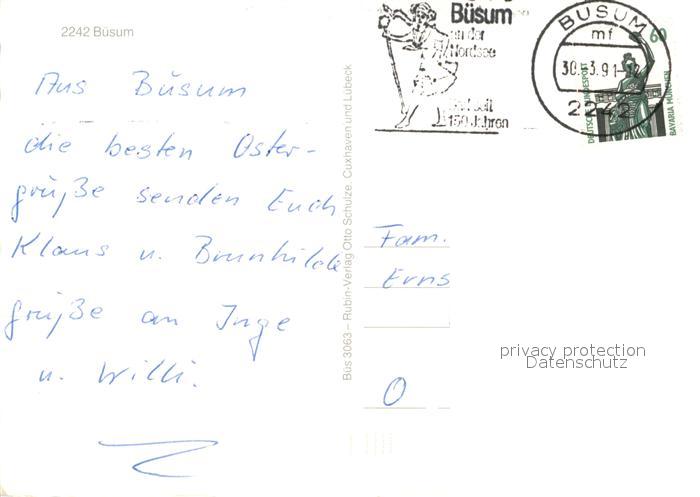 2242 Büsum
Aus Büsum
die besten Oster-
grüße senden Euch
Klaus u. Brunhilde
grüße an Inge
u. Willi.
Büs 3063 – Rubin-Verlag Otto Schulze, Cuxhaven und Lübeck
Büsum
an der
Nordsee
150 Jahren
BÜSUM
mf
30.-3.91-12
2242
60
DEUTSCHE BUNDESPOST
BAVARIA MÜNCHEN
Fam.
Erns
O
privacy protection
Datenschutz